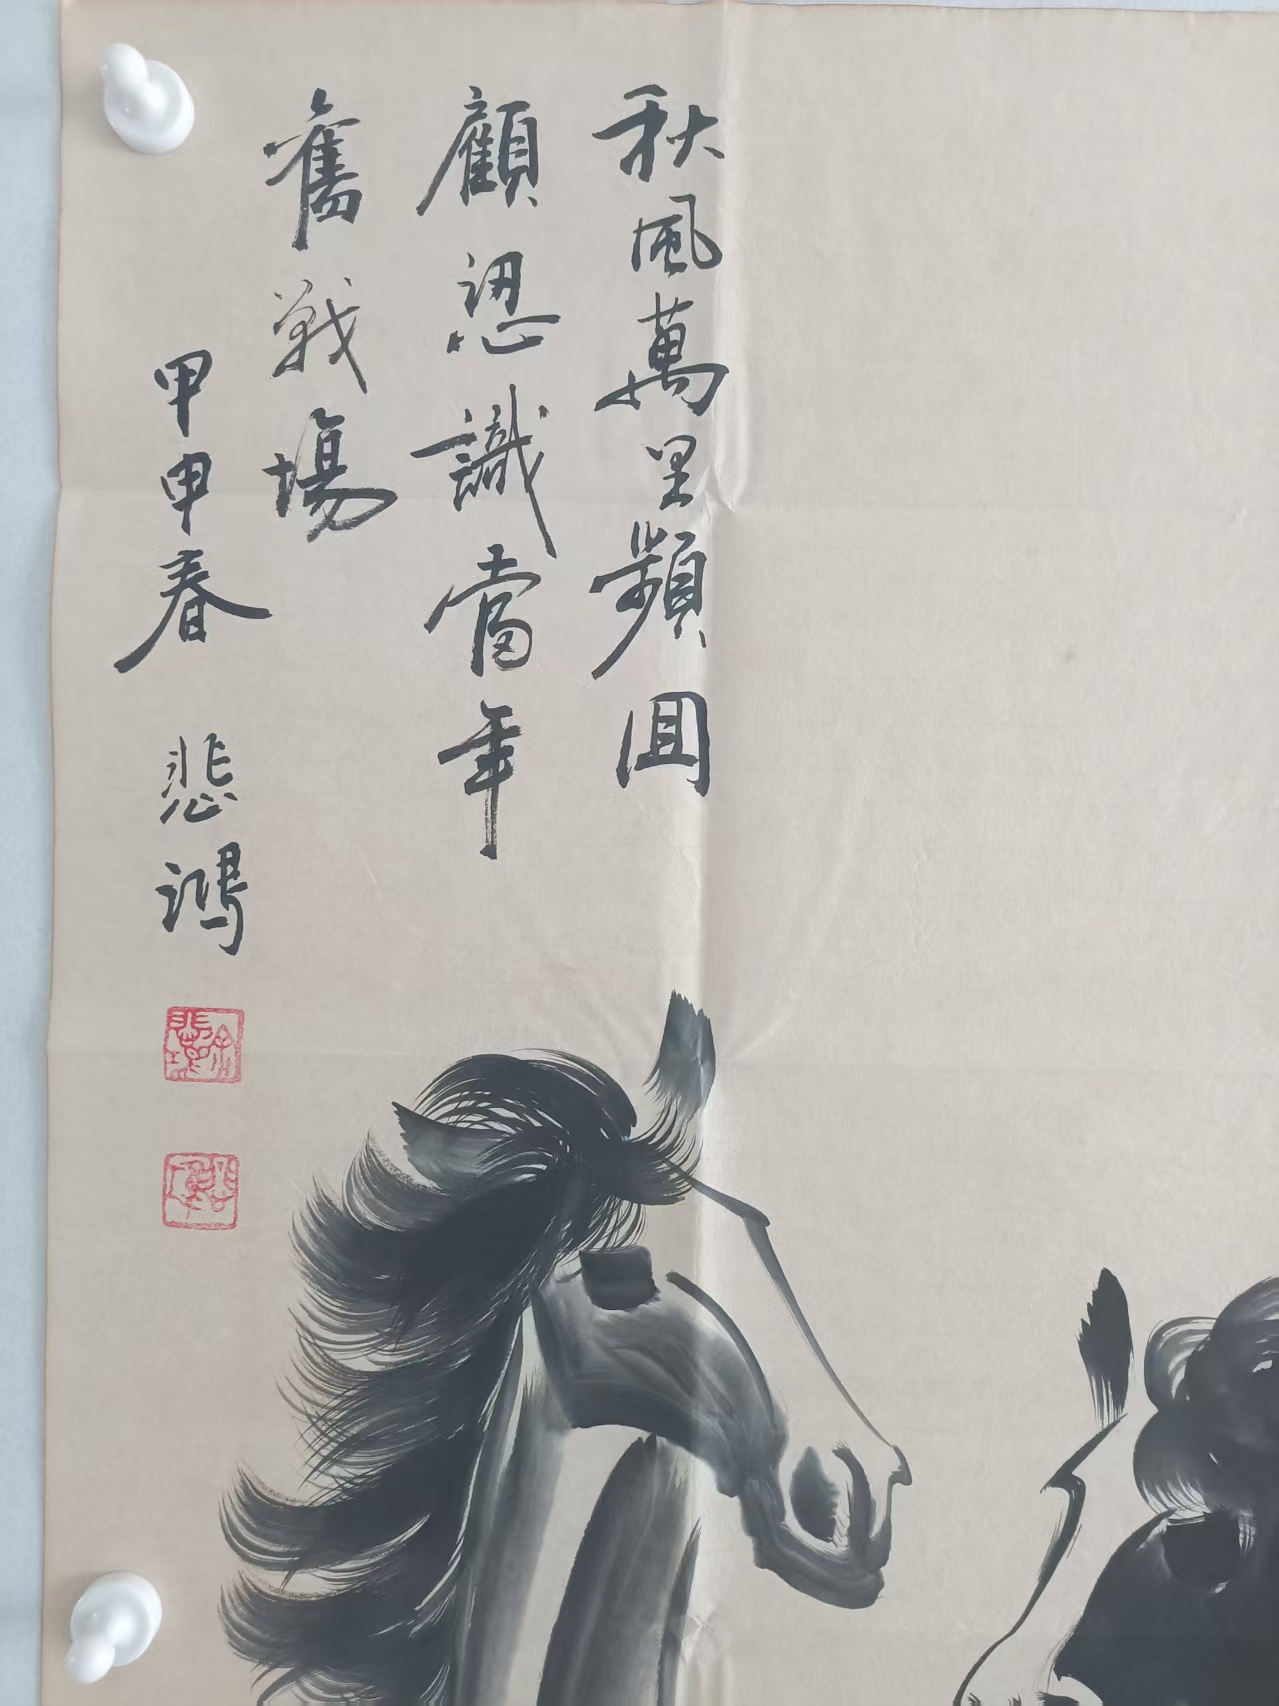 秋風萬里頻回
顧認識當年
舊戰場
甲申春 悲鴻